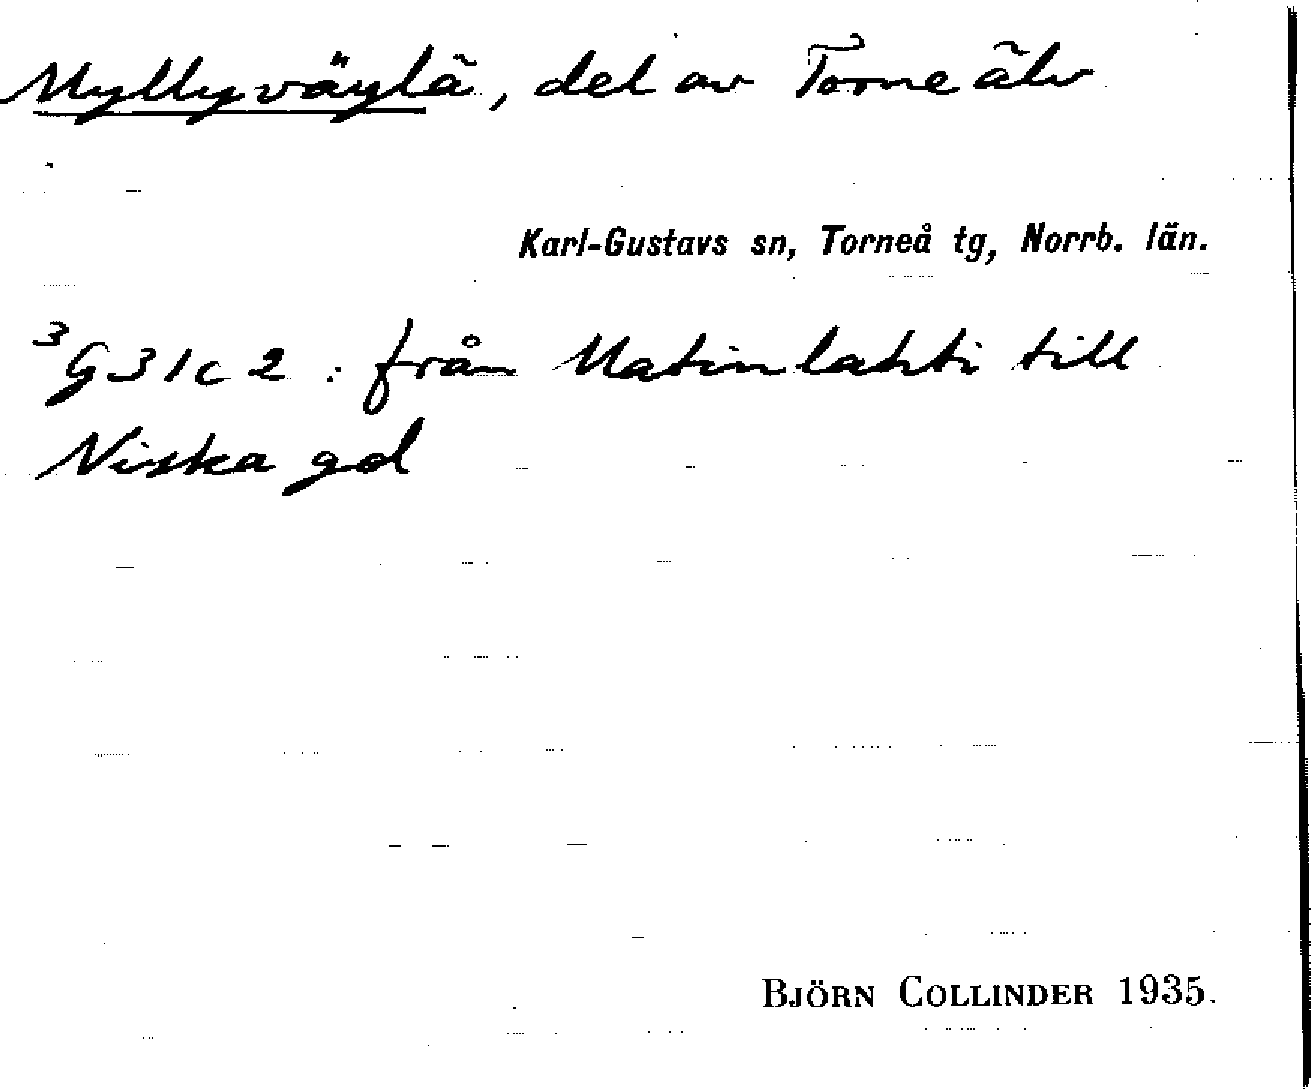 Myllyväylä, del av Torne älv
Karl-Gustavs sn, Torneå tg, Norrb. län.
³G31c2: från Matinlahti till
Niska gd
BJÖRN COLLINDER 1935.